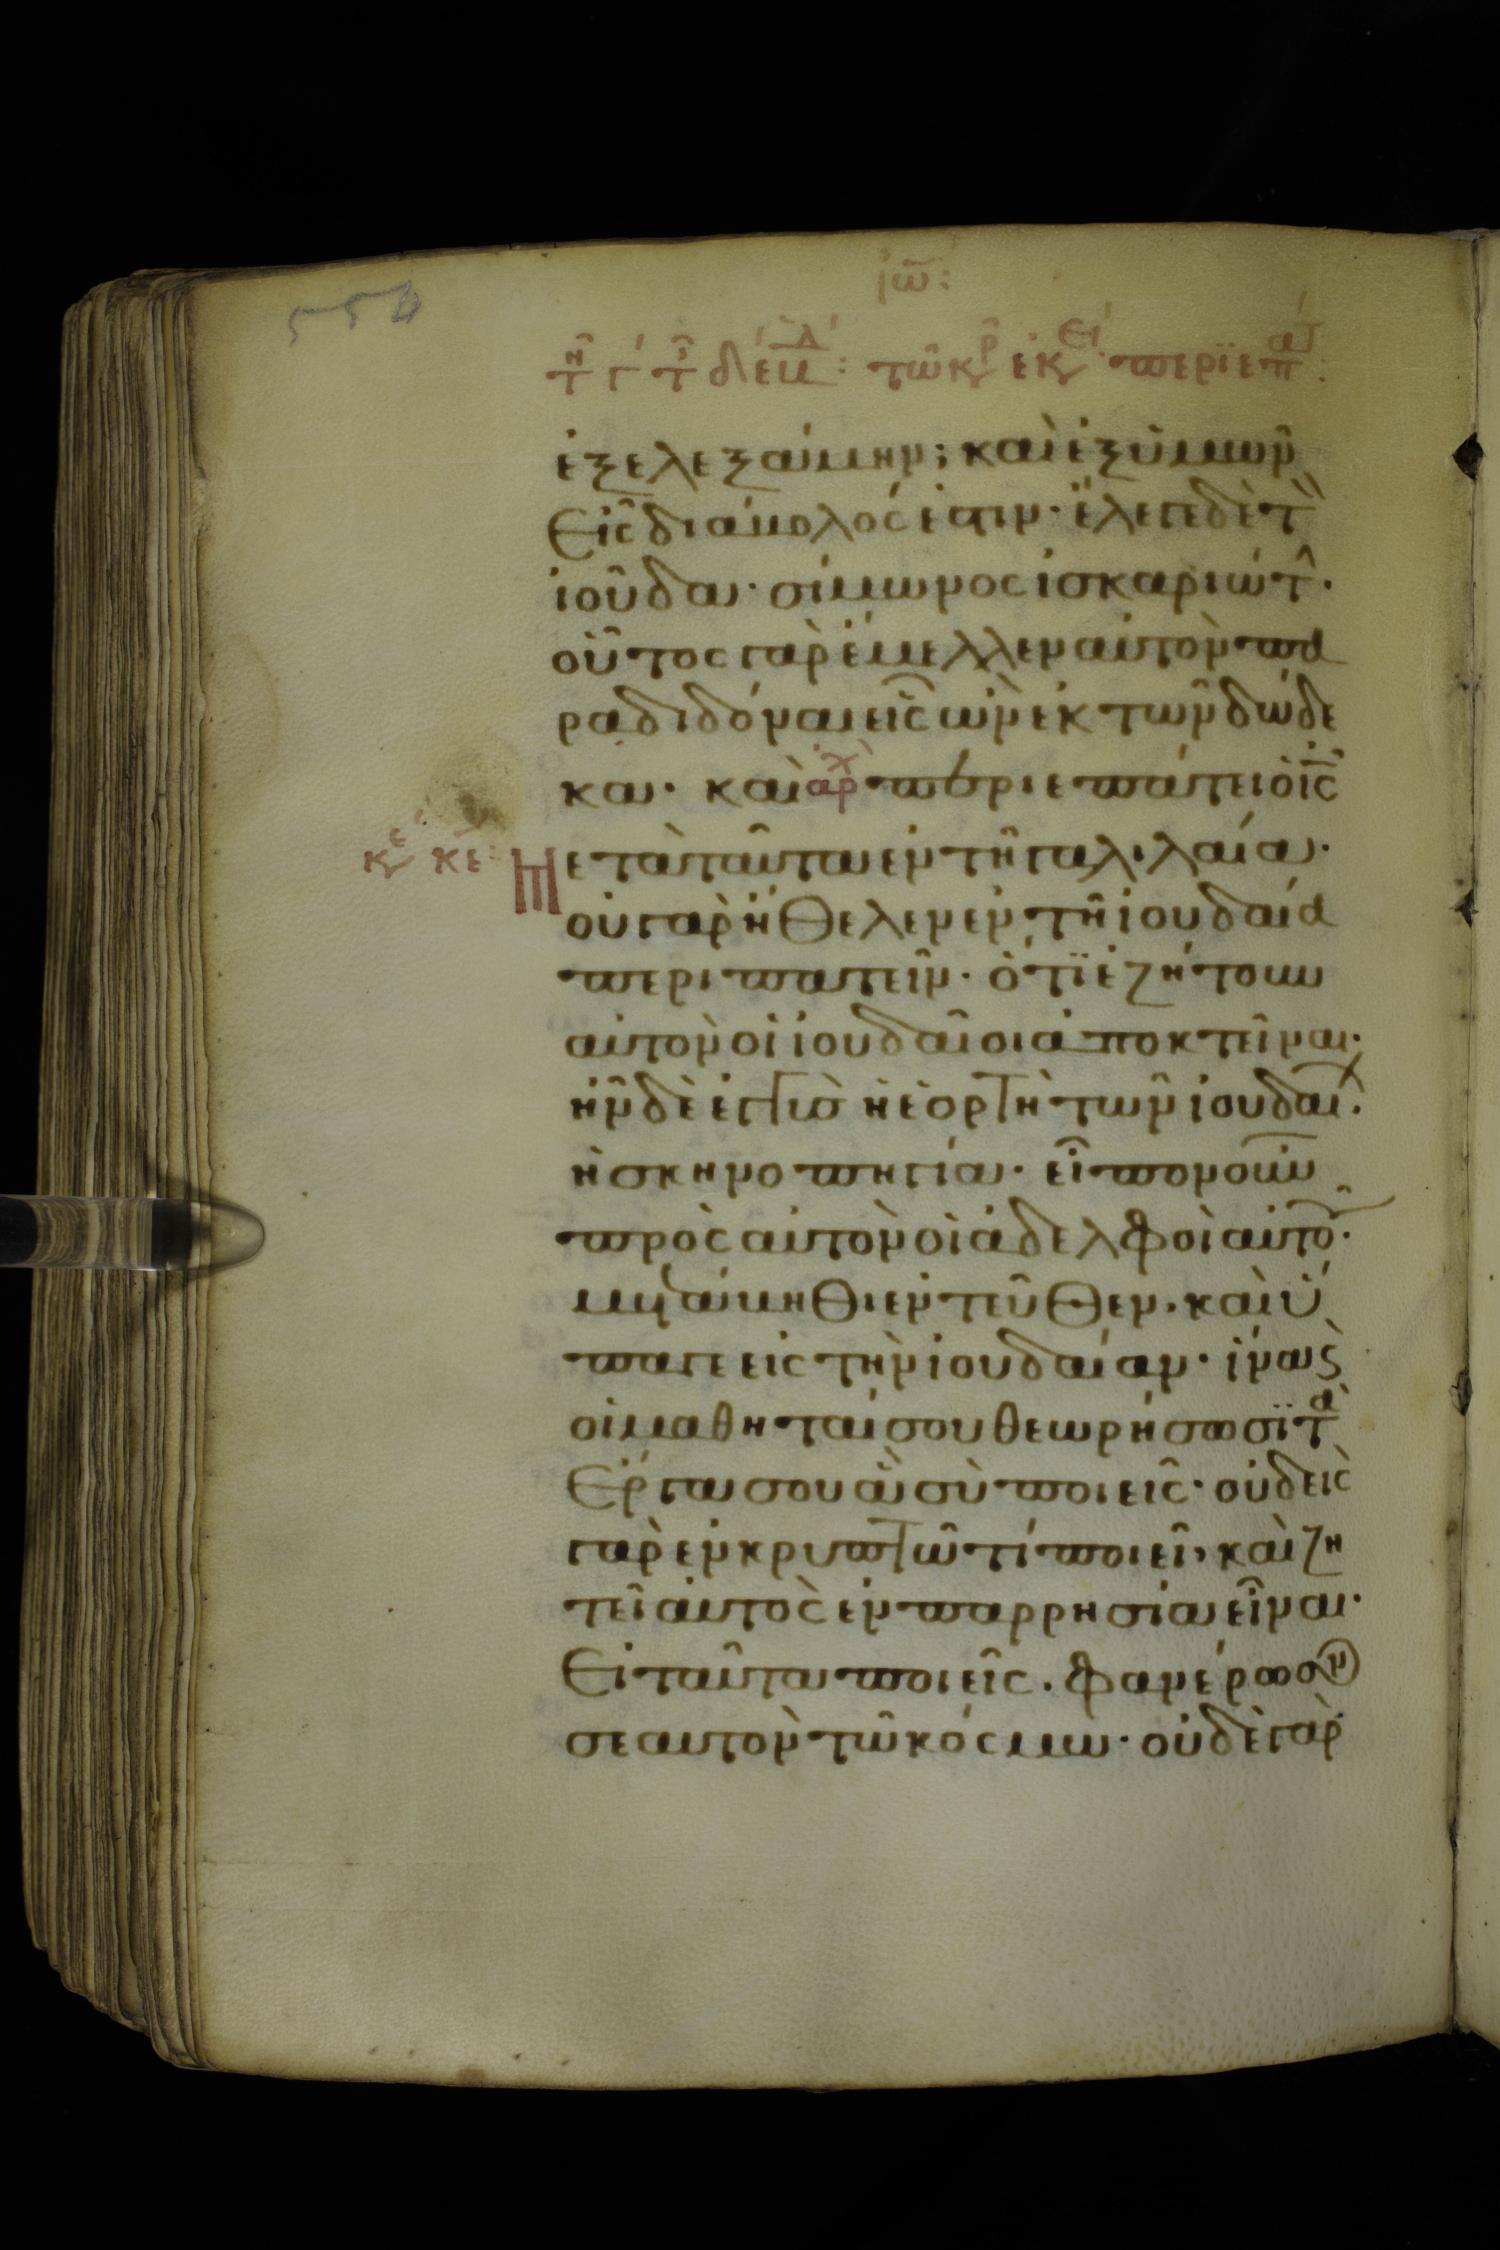 ἰω̃:
τῆ γ́ τ̑ δ́ ἑβδ: τῶ κρ̑ ἐκεί· περϊεπάτ:
ἐξελεξάμην; καὶ ἐξ ὑμῶν
Εἷς διάβολός ἐστιν· ἔλεγε δὲ τὸ̀
ἰούδαν· σίμωνος ἰσκαριώτ̑·
οὗτος γὰρ ἔμελλεν αὐτὸν πα
ραδιδόναι εἷς ὢν ἐκ τῶν δώδε
κα· καὶ ἀρχ̀ περιεπάτει ὁ ἰς̅
κε κε: Μετὰ ταῦτα ἐν τῆ γαλιλαία·
οὐ γὰρ ἤθελεν ἐν τῆ ἰουδαία
περιπατεῖν· ὅτϊ ἐζήτουν
αὐτὸν οἱ ἰουδαῖοι ἀποκτεῖναι·
ἦν δὲ ἐγγὺς ἡ ἑορτὴ τῶν ἰουδαί·
ἡ σκηνοπηγία· εἶπον οὖν
πρὸς αὐτὸν οἱ ἀδελφοὶ αὐτο̑·
μετάβηθι ἐντεῦθεν· καὶ ὕ
παγε εἰς τὴν ἰουδαίαν· ἵνα ϛ̀
οἱ μαθηταί σου θεωρήσωσϊ τὰ
Ἔργα σου ἃ σὺ ποιεῖς· οὐδεὶς
γὰρ ἐν κρυπτῶ τί ποιεῖ, καὶ ζη
τεῖ αὐτὸς ἐν παρρησία εἶναι·
Εἰ ταῦτα ποιεῖς· φανέρωσον
σεαυτὸν τῶ κόσμω· οὐδὲ γὰρ